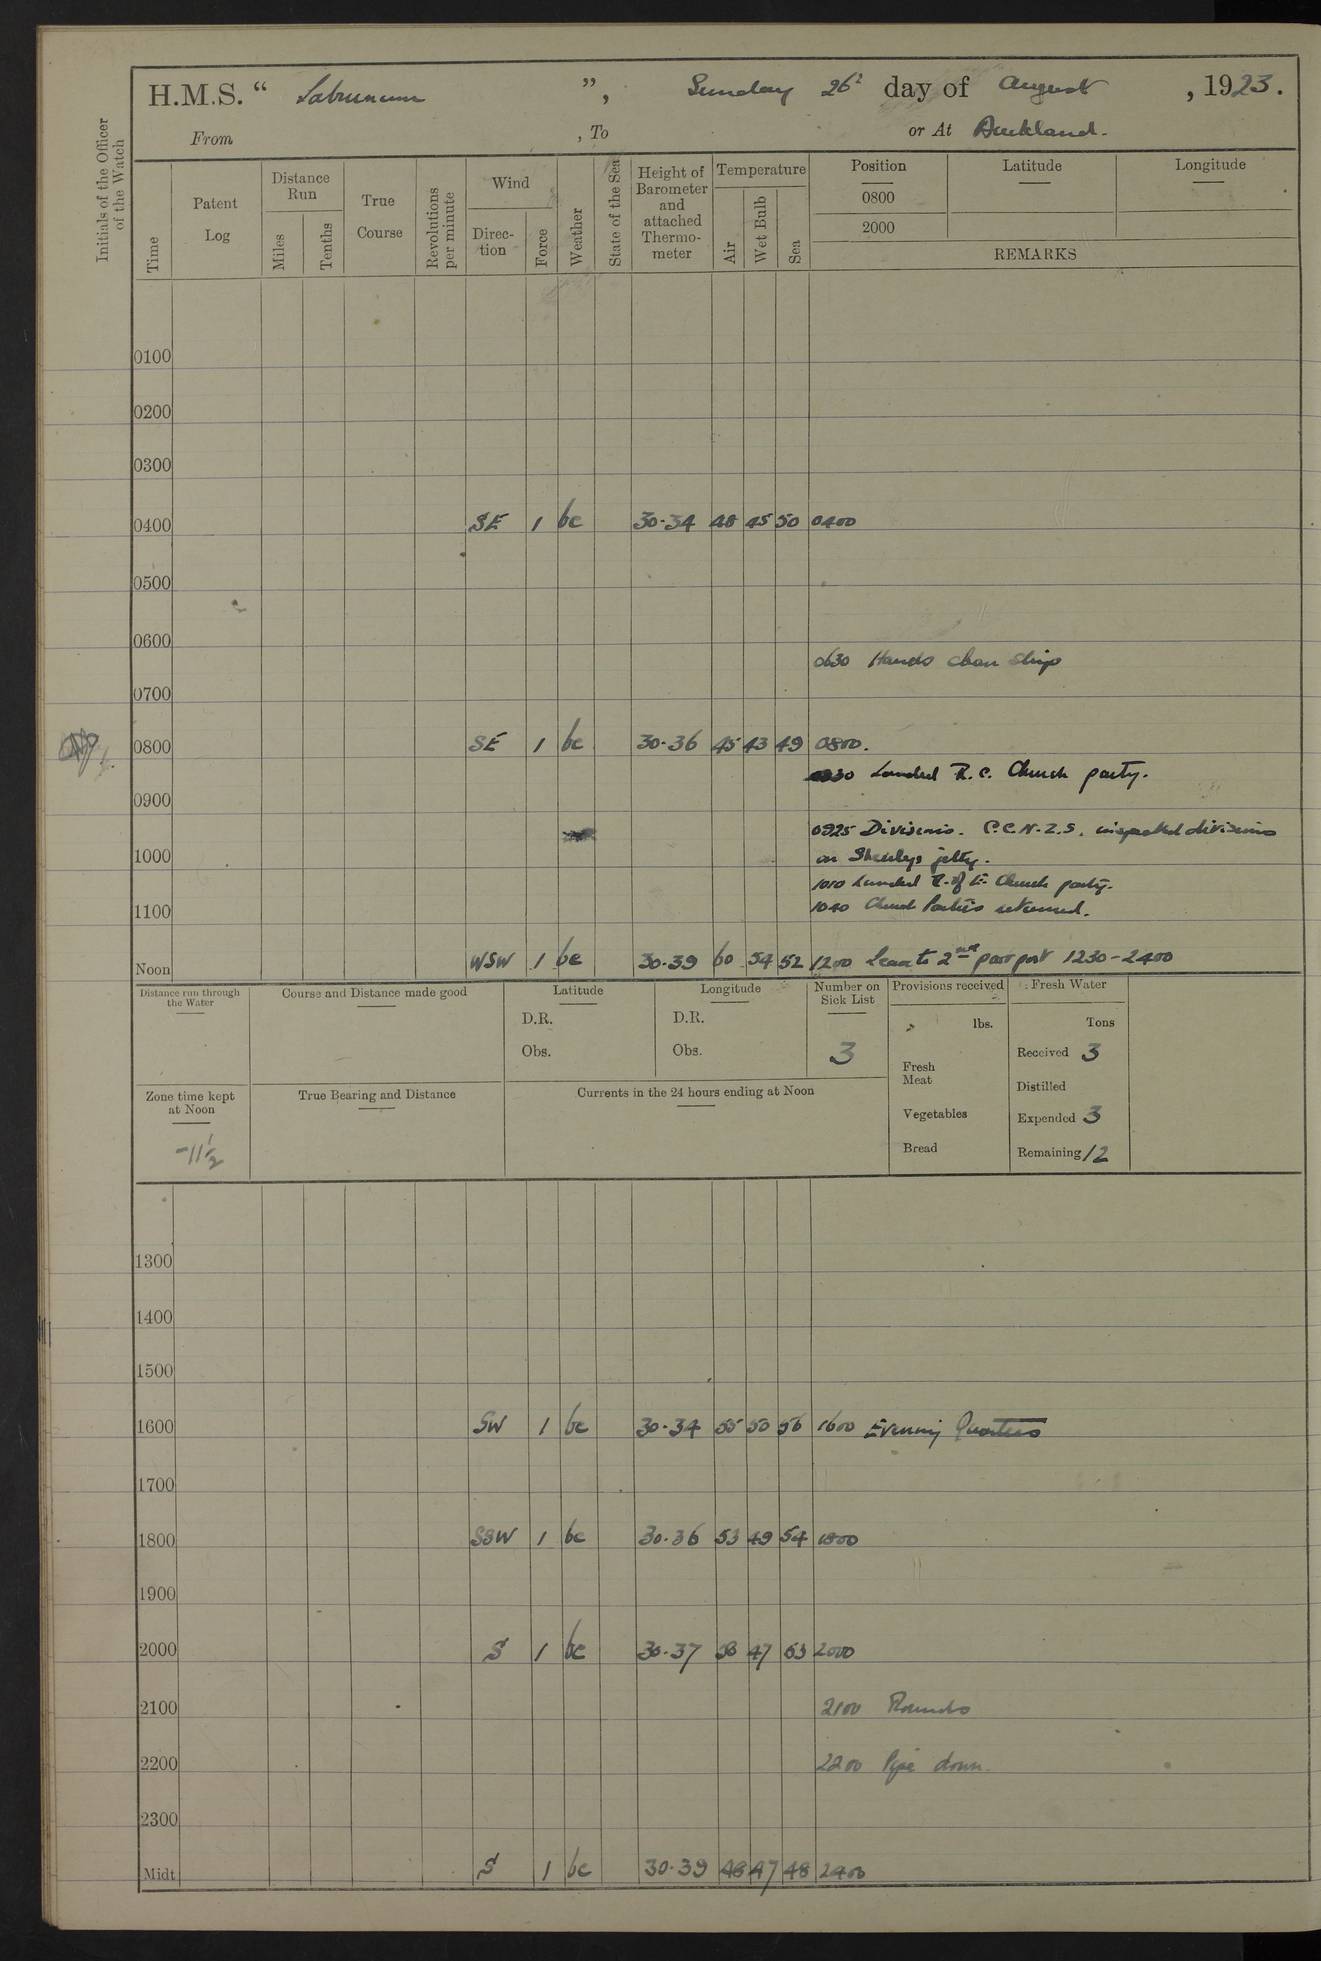 H.M.S. “ Laburnum ”, Sunday 26th day of August, 1923.
From , To or At Auckland.
Initials of the Officer of the Watch
Time
Patent Log
Distance Run
Miles
Tenths
True Course
Revolutions per minute
Wind
Direction
Force
Weather
State of the Sea
Height of Barometer and attached Thermometer
Temperature
Air
Wet Bulb
Sea
Position Latitude Longitude
0800
2000
REMARKS
0100
0200
0300
0400 SE 1 bc 30.34 48 45 50 0400
0500
0600
0630 Hands clean ship
0700
0800 SE 1 bc 30.36 45 43 49 0800.
0830 Landed R.C. Church party.
0900
0925 Divisions. C.C.N.Z.S. inspected divisions
1000 on Sheerlegs jetty.
1010 Landed C. of E. Church party.
1040 Church Parties returned.
1100
Noon WSW 1 bc 30.39 60 54 52 1200 Leave to 2nd part port 1230-2400
Distance run through the Water
Course and Distance made good
Latitude
D.R.
Obs.
Longitude
D.R.
Obs.
Number on Sick List
3
Provisions received
lbs.
Fresh Meat
Vegetables
Bread
Fresh Water
Tons
Received 3
Distilled
Expended 3
Remaining 12
Zone time kept at Noon
-11½
True Bearing and Distance
Currents in the 24 hours ending at Noon
1300
1400
1500
1600 SW 1 bc 30.34 55 50 56 1600 Evening Quarters
1700
1800 SSW 1 bc 30.36 53 49 54 1800
1900
2000 S 1 bc 30.37 50 47 53 2000
2100 2100 Rounds
2200 2200 Pipe down.
2300
Midt S 1 bc 30.39 48 47 48 2400